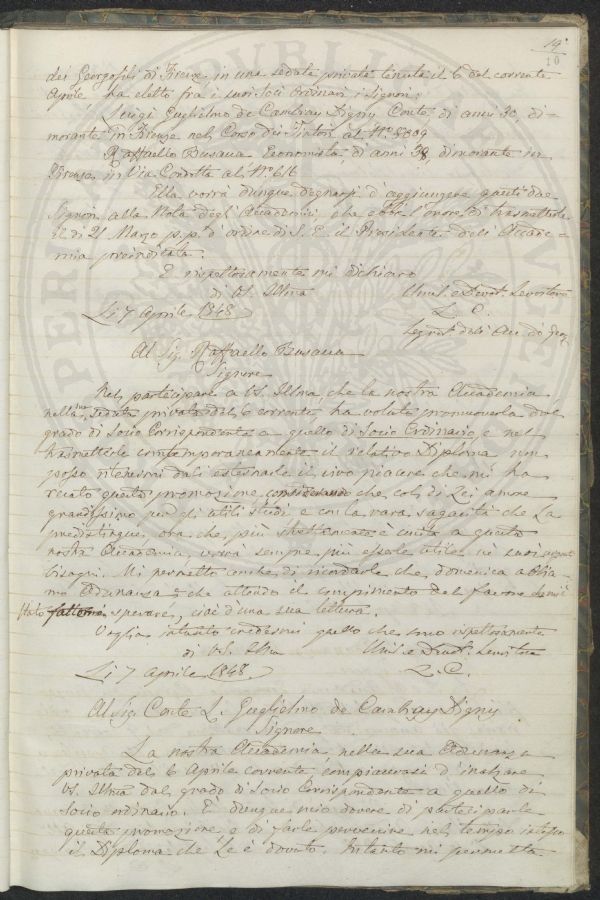 19
10
dei Georgofili di Firenze in una seduta privata tenuta il 6 del corrente
Aprile ha eletto fra i suoi Soci Ordinari i Signori:
Luigi Guglielmo de Cambray Digny Conte, di anni 30, di-
morante in Firenze nel Corso dei Tintori al N.°
Raffaello Busacca Economista, di anni 38, dimorante in
Firenze in Via Condotta al N.° 616
Ella vorrà dunque degnarsi d'aggiungere questi due
Signori alla Nota degli Accademici, che ebbi l'onore di trasmetterle
il dì 21 Marzo p.p.to d'ordine di S. E. il Presidente dell'Accade-
mia preindicata.
E rispettosamente mi dichiaro
di VS. Illma Umil. e Devot. Servitore
Lì 7 Aprile 1848. L. C.
Segret. dell'Acc. dei Geor.
Al Sig. Raffaello Busacca
Signore
Nel partecipare a VS. Illma che la nostra Accademia
nella sua seduta privata del 6 corrente ha voluto promuoverla dal
grado di Socio Corrispondente a quello di Socio Ordinario, e nel
trasmetterle contemporaneamente il relativo Diploma non
posso ritenermi dall'esternarle il vivo piacere che mi ha
recato questa promozione, considerando che, col di Lei amore
grandissimo per gli utili studi e con la rara sagacità che La
predistingue, ora che più strettamente è unita a questa
nostra Accademia, vorrà sempre più esserle utile nei suoi
bisogni. Mi permetto anche di ricordarle che domenica abbia-
mo Adunanza e che attendo il compimento del favore
stato fattomi sperare, cioè d'una sua lettura.
Voglia intanto credermi quello che sono rispettosamente
di VS. Illma Umil. e Devot. Servitore
Lì 7 Aprile 1848. L. C.
Al Sig. Conte L. Guglielmo de Cambray Digny
Signore
La nostra Accademia nella sua Adunanza
privata del 6 Aprile corrente, compiacevasi d'inalzare
VS. Illma dal grado di Socio Corrispondente a quello di
Socio ordinario. È dunque mio dovere di parteciparle
questa promozione e di farle pervenire nel tempo istesso
il Diploma che Le è dovuto. Intanto mi permetta